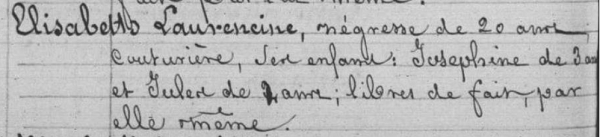 Elisabeth Laurencine, négresse de 20 ans,
couturière, Ses enfans: Josephine de 3 ans
et Jules de 2 ans; libres de fait, par
elle même.